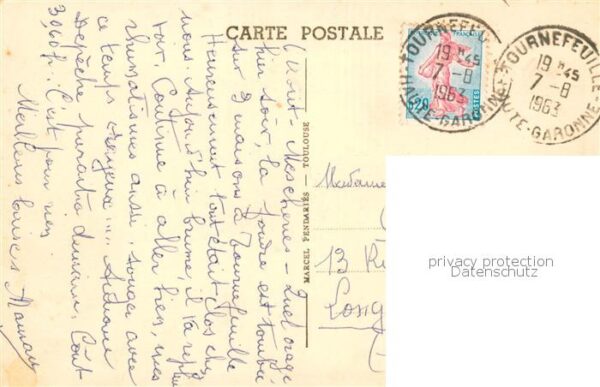 CARTE POSTALE
TOURNEFEUILLE
19 H 45
7-8
1963
HAUTE-GARONNE
TOURNEFEUILLE
19 H 45
7-8
1963
HAUTE-GARONNE
0,20
POSTES
MARCEL PENDARIÈS - TOULOUSE
6 Août - Mes chéries - Quel orage
hier soir, la foudre est tombée
sur 2 maisons à Tournefeuille
Heureusement tout était clos chez
nous. Aujourd'hui brume, il va repleu
voir. Continue à aller bien, mes
rhumatismes aussi, songez avec
ce temps orageux...
Dépêche paraîtra demain. Coût
3060 f. C'est pour rien
Meilleurs baisers Maman
Madame
13 R
Long
privacy protection
Datenschutz